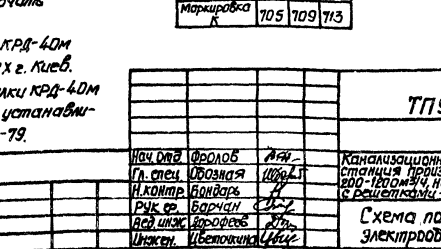 Маркировка К 705 709 713
КРД-40м
х г. Киев.
лки КРД-40м
устанавли-
-79.
ТП9
Нач. отд Фролов
Гл. спец. Обозная
Н.контр. Бондарь
Рук. гр. Барчан
Вед. инж. Дорофеев
Инжен. Цветочкина
Канализационн
станция произ
200-1200м3/ч, н
с решетками
Схема по
Электрооб